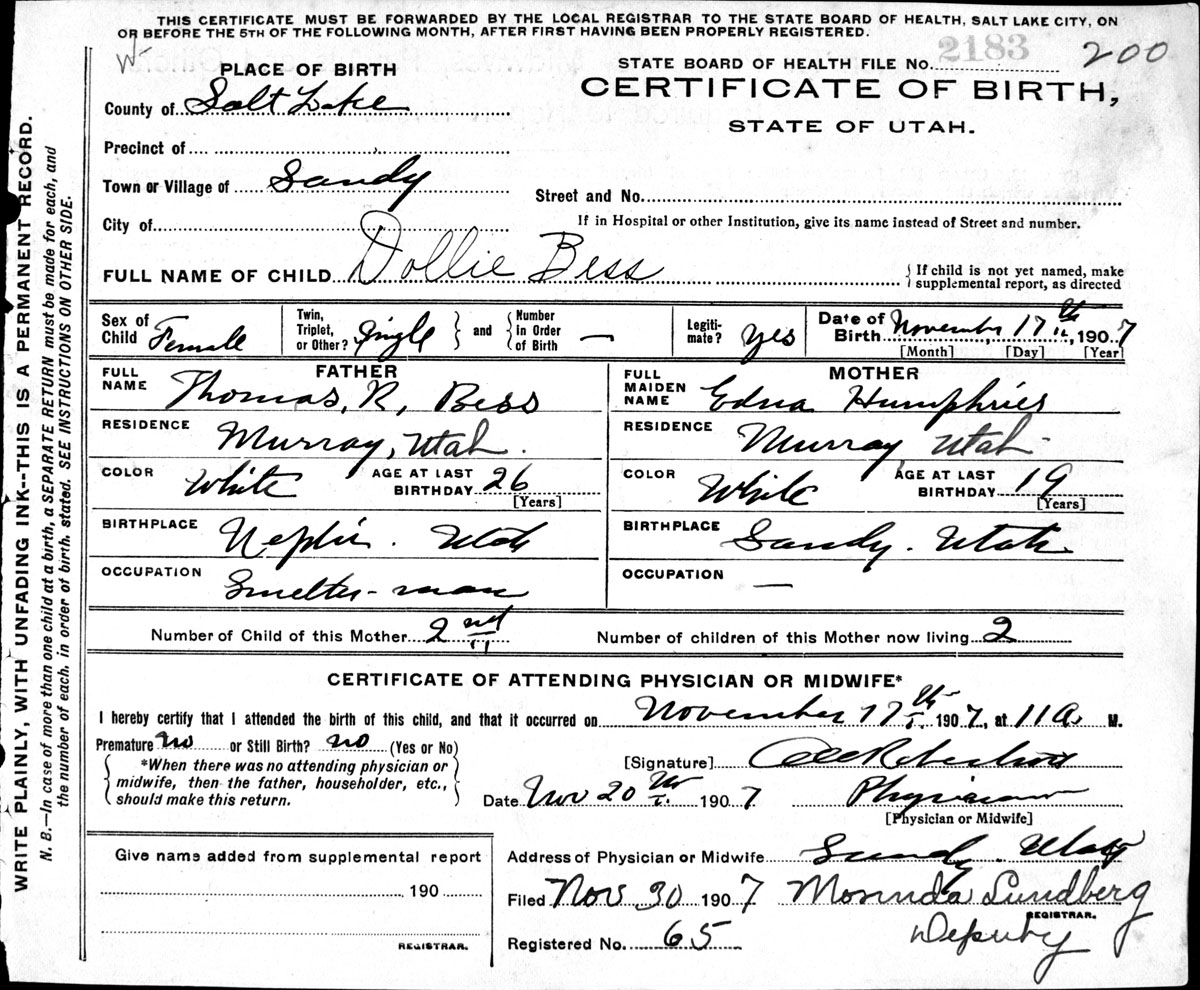 THIS CERTIFICATE MUST BE FORWARDED BY THE LOCAL REGISTRAR TO THE STATE BOARD OF HEALTH, SALT LAKE CITY, ON
OR BEFORE THE 5TH OF THE FOLLOWING MONTH, AFTER FIRST HAVING BEEN PROPERLY REGISTERED.
2183
200
STATE BOARD OF HEALTH FILE NO.
CERTIFICATE OF BIRTH,
STATE OF UTAH.
PLACE OF BIRTH
County of Salt Lake
Precinct of
Town or Village of Sandy
Street and No.
City of
If in Hospital or other Institution, give its name instead of Street and number.
FULL NAME OF CHILD Dollie Bess
If child is not yet named, make
supplemental report, as directed
Sex of Child Female
Twin, Triplet, or Other? Single
and
Number in Order of Birth —
Legiti-mate? Yes
Date of Birth November 17th, 1907
[Month] [Day] [Year]
FATHER
FULL NAME Thomas, R, Bess
RESIDENCE Murray, Utah.
COLOR White AGE AT LAST BIRTHDAY 26
[Years]
BIRTHPLACE Nephi. Utah
OCCUPATION Smelter-man
MOTHER
FULL MAIDEN NAME Edna Humphries
RESIDENCE Murray Utah
COLOR White AGE AT LAST BIRTHDAY 19
[Years]
BIRTHPLACE Sandy. Utah
OCCUPATION —
Number of Child of this Mother 2nd
Number of children of this Mother now living 2
CERTIFICATE OF ATTENDING PHYSICIAN OR MIDWIFE*
I hereby certify that I attended the birth of this child, and that it occurred on November 17th 1907, at 11 a. M.
Premature No or Still Birth? no (Yes or No)
*When there was no attending physician or
midwife, then the father, householder, etc.,
should make this return.
[Signature]
Date Nov 20th 1907 Physician
[Physician or Midwife]
Give name added from supplemental report
190
REGISTRAR.
Address of Physician or Midwife Sandy. Utah
Filed Nov 30 1907 Lundberg
REGISTRAR.
Registered No. 65 Deputy
WRITE PLAINLY, WITH UNFADING INK--THIS IS A PERMANENT RECORD.
N. B.—In case of more than one child at a birth, a SEPARATE RETURN must be made for each, and
the number of each, in order of birth, stated. SEE INSTRUCTIONS ON OTHER SIDE.